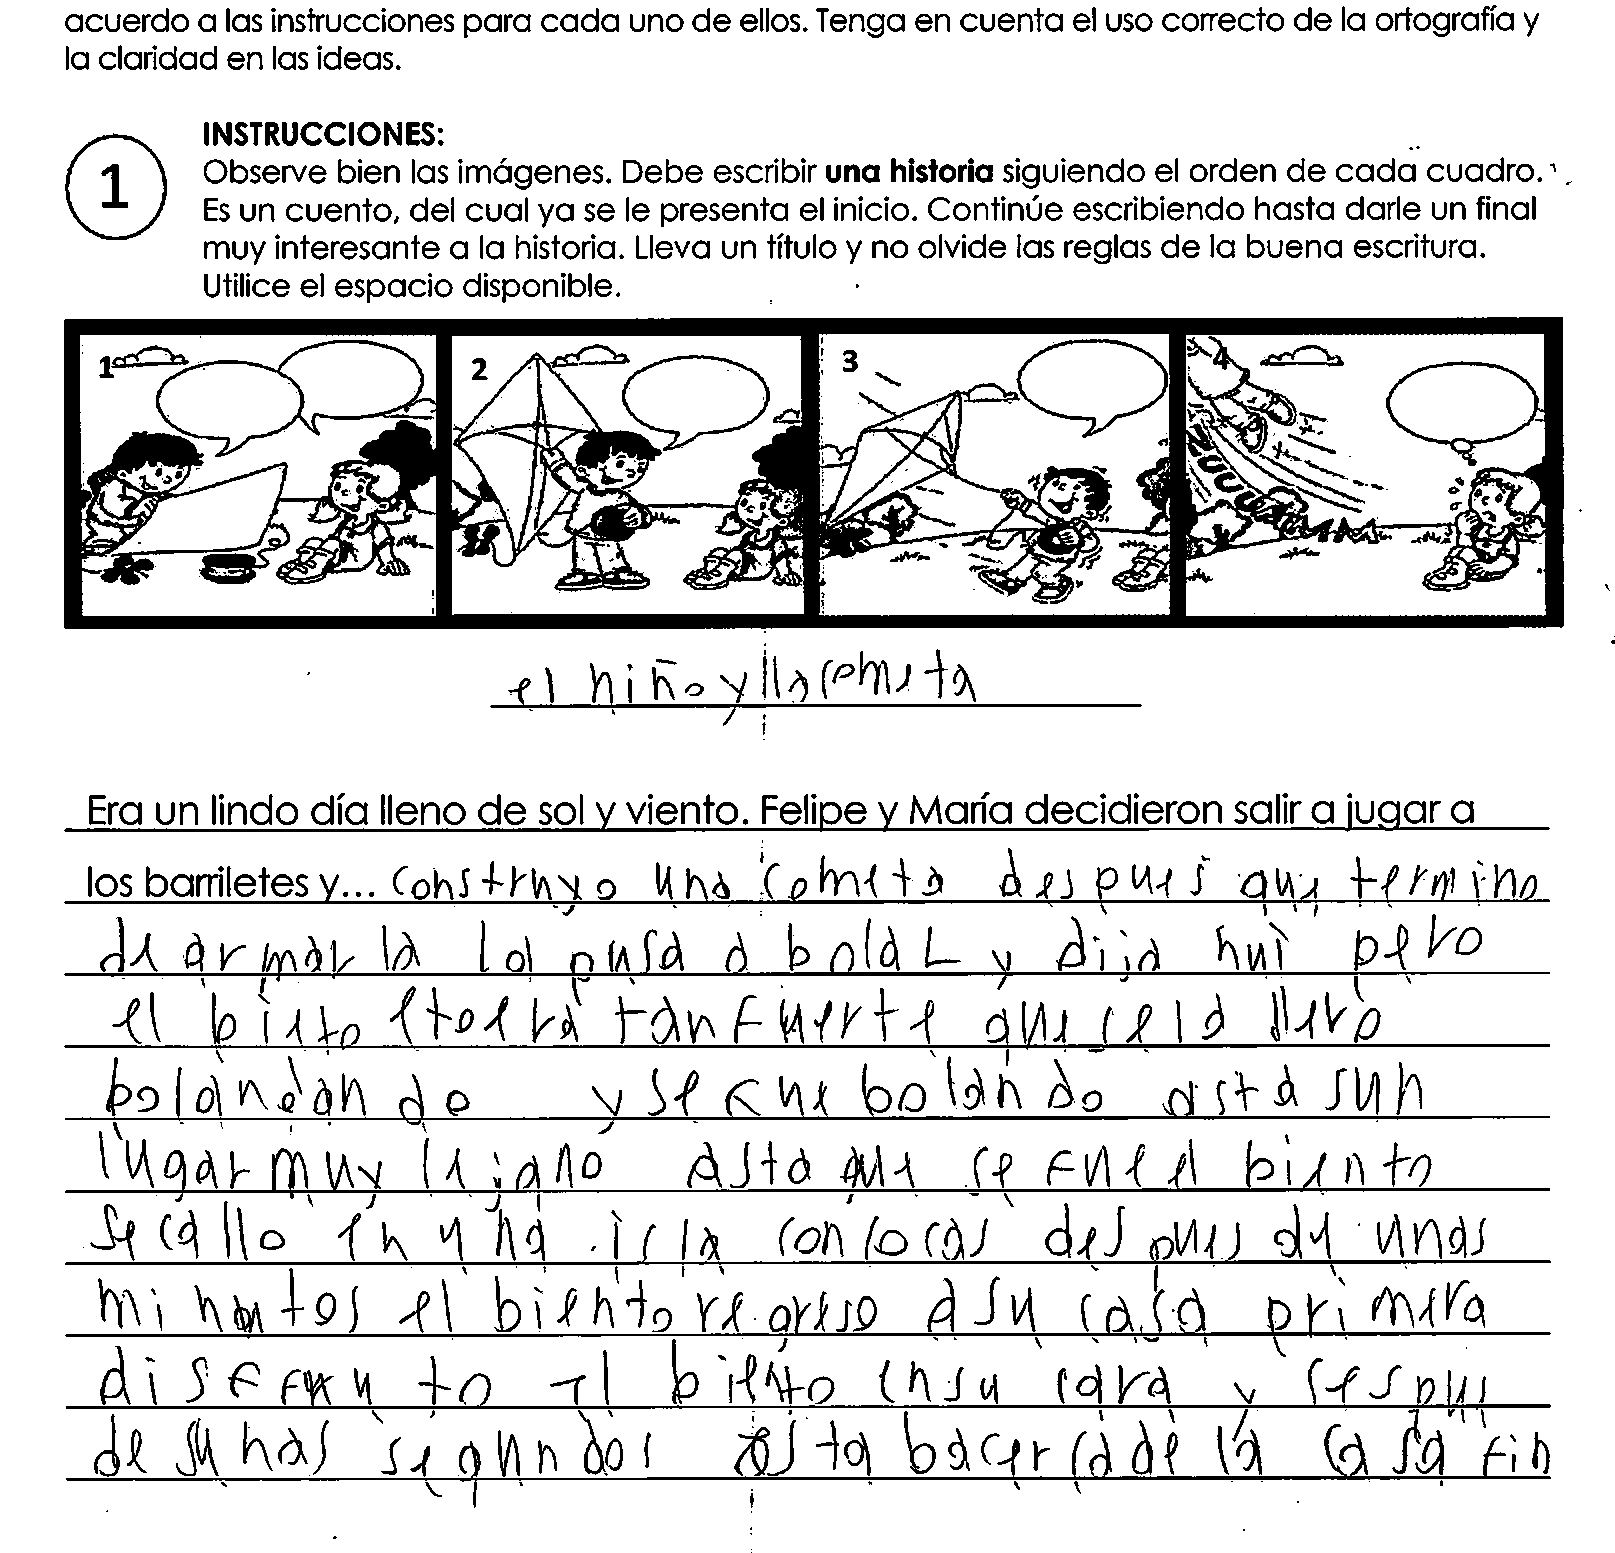 acuerdo a las instrucciones para cada uno de ellos. Tenga en cuenta el uso correcto de la ortografía y
la claridad en las ideas.
1
INSTRUCCIONES:
Observe bien las imágenes. Debe escribir una historia siguiendo el orden de cada cuadro.
Es un cuento, del cual ya se le presenta el inicio. Continúe escribiendo hasta darle un final
muy interesante a la historia. Lleva un título y no olvide las reglas de la buena escritura.
Utilice el espacio disponible.
1 2 3 4
el niño y lla cometa
Era un lindo día lleno de sol y viento. Felipe y María decidieron salir a jugar a
los barriletes y... construyo una cometa despues que termino
de armar la la pusa a bolar y dija hui pero
el tan fuerte que se la llevo
y se fue bolando asta sun
lugar muy lejano asta que se fue el biento
se callo en una isla con locas despues de unas
minutos el biento regreso a su casa primera
disffru to el biento en su cara y sespues
de sunas segundos asta bacerca de la casa fin